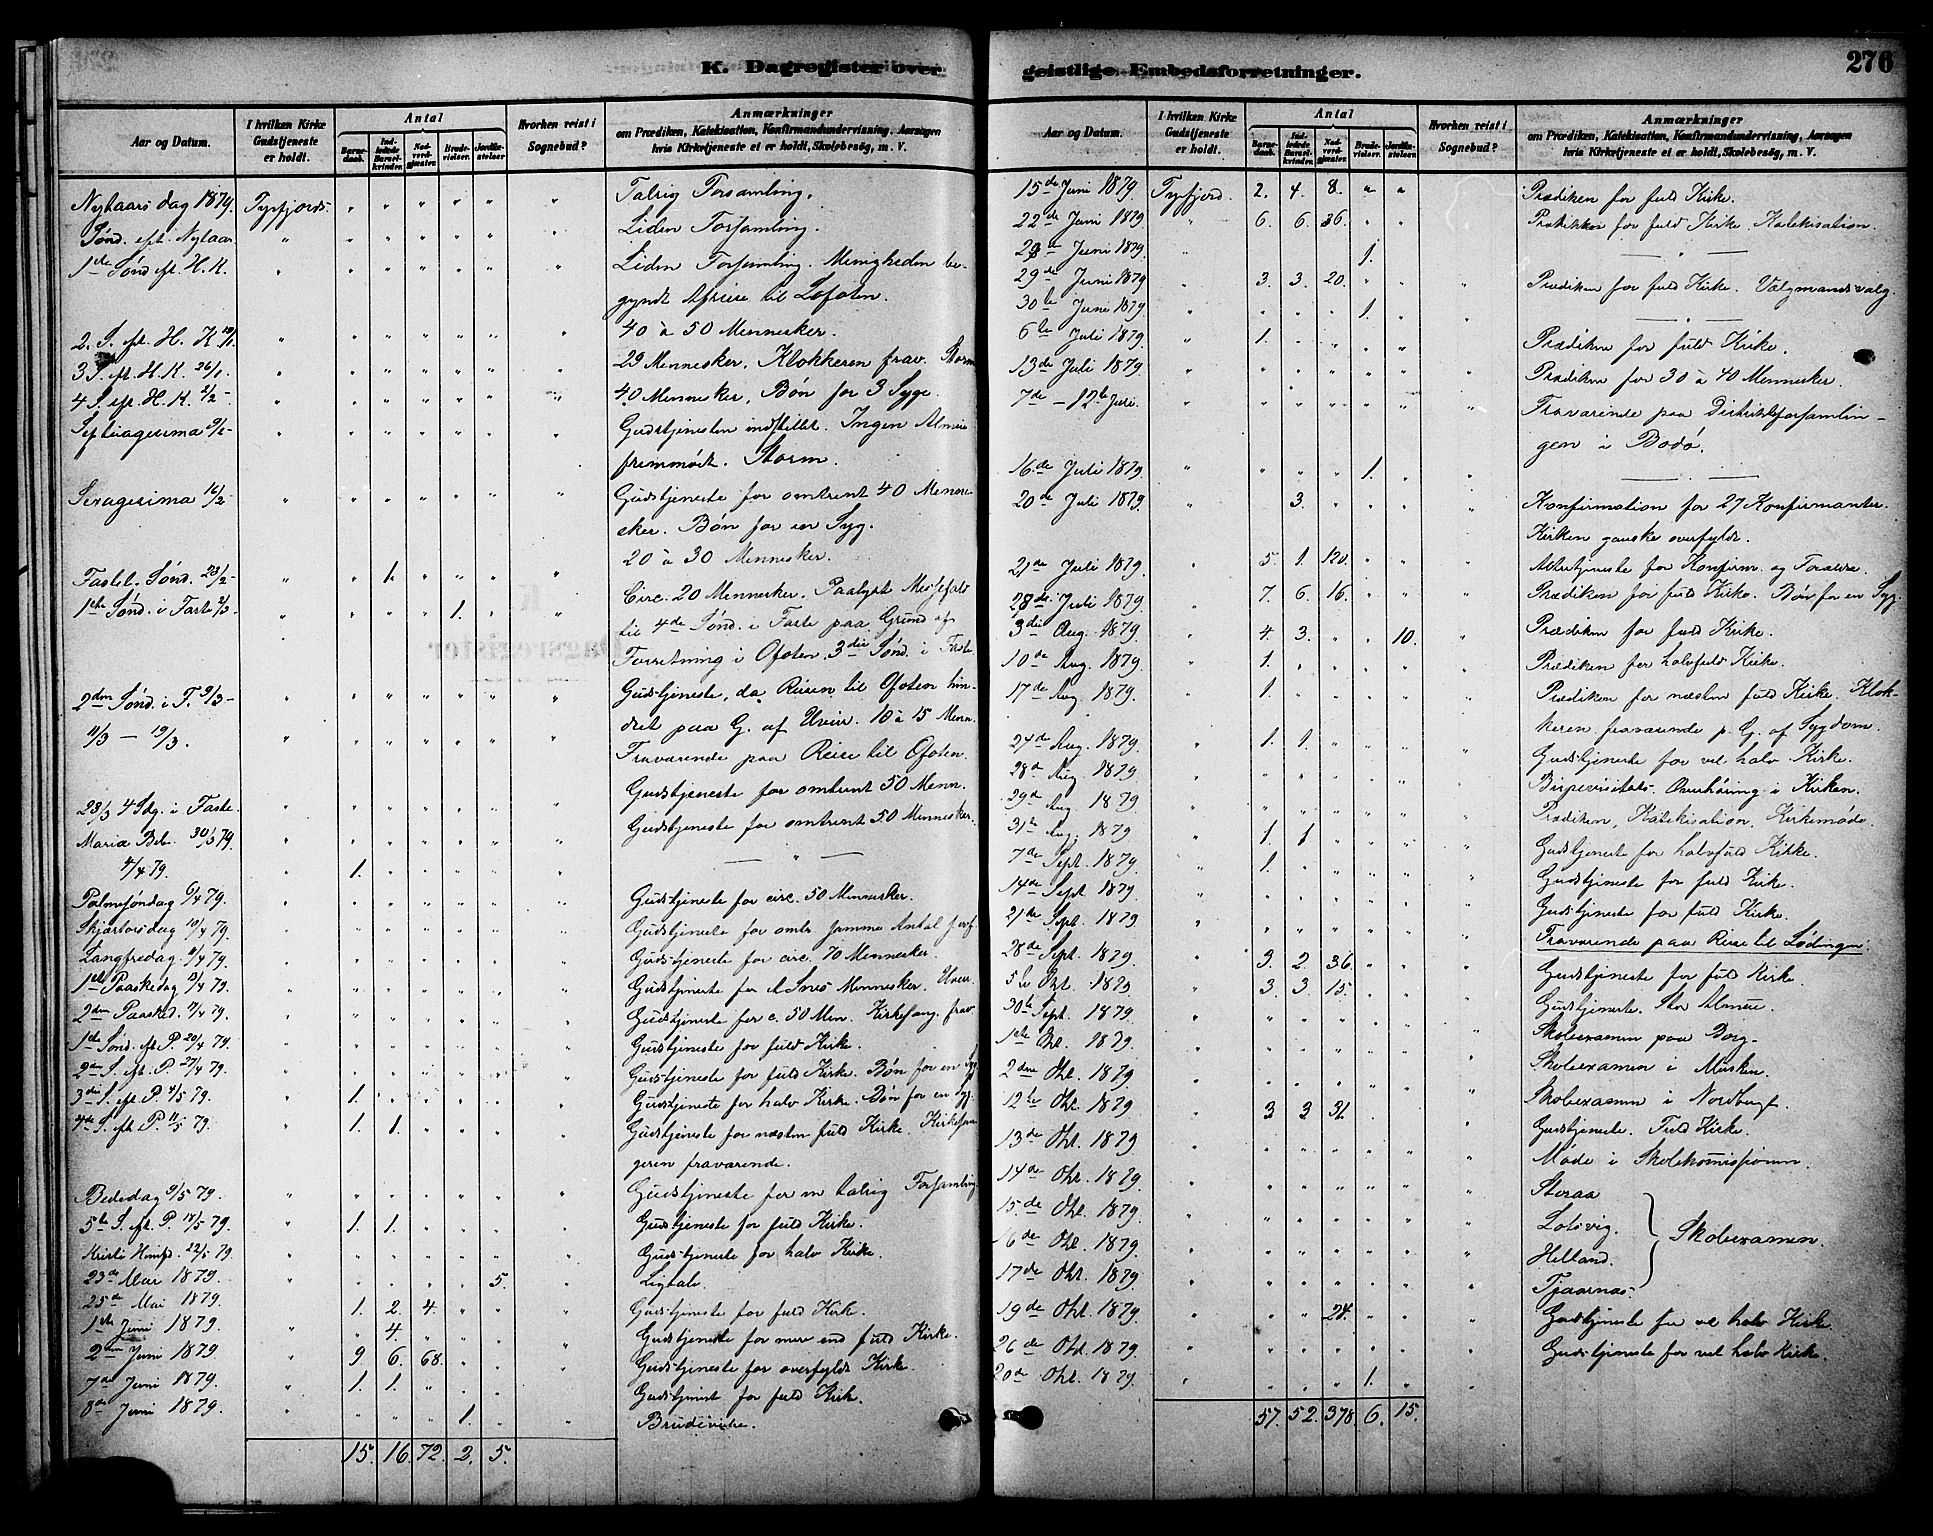 K. Dagregister over
Aar og Datum.
I hvilken Kirke Gudstjeneste er holdt.
Antal
Barnedaab.
Indledede Barselkvinder.
Nadverdgjæster.
Brudevielser.
Jordfæstelser.
Hvorhen reist i Sognebud?
Anmærkninger
om Prædiken, Katekisation, Konfirmandundervisning, Aarsagen
hvis Kirketjeneste ei er holdt, Skolebesøg, m. V.
Nytaarsdag 1879. Tysfjords. " " " " " " Talrig Forsamling.
Sønd. eft. Nytaar " " " " " " " Liden Forsamling.
1ste Sønd. eft. H. K. " " " " " " " Liden Forsamling. Menigheden be-
gyndt Afreise til Lofoten.
2. S. eft. H. K. 19/1. " " " " " " " 40 à 50 Mennesker.
3 S. eft. H. K. 26/1. " " " " " " " 29 Mennesker. Klokkeren frav. Storm
4 S. eft. H. K. 2/2 - " " " " " " " 40 Mennesker. Bøn for 3 Syge.
Septuagesima 9/2- " " " " " " " Gudstjenesten indstillet. Ingen Almue
fremmødt. Storm.
Sexagesima 16/2- " " " " " " " Gudstjeneste for omtrent 40 Menne-
sker. Bøn for en Syg.
Fastel. Sønd. 23/2- " " 1. " " " " 20 à 30 Mennesker.
1ste Sønd. i Faste 2/3 " " " " 1. " " Circ. 20 Mennesker. Paalyst Messefald
til 4de Sønd. i Faste paa Grund af
Forretning i Ofoten. 3die Sønd. i Faste
2den Sønd. i F. 9/3- " " " " " " " Gudstjeneste, da Reisen til Ofoten hin-
dret paa G. af Uveir. 10 à 15 Menn.
11/3 - 19/3. " " " " " " " Fraværende paa Reise til Ofoten.
23/3 4 Sdg. i Faste. " " " " " " " Gudstjeneste for omtrent 50 Menn.
Mariæ Beb. 30/3 79. " " " " " " " Gudstjeneste for omtrent 50 Mennesker.
4/4 79. " 1. " " " " " — " —
Palmesøndag 6/4 79. " " " " " " " Gudstjeneste for circ. 50 Mennesker.
Skjærtorsdag 10/4 79. " " " " " " " Gudstjeneste for omtr. samme Antal
Langfredag 11/4 79. " " " " " " " Gudstjeneste for circ. 70 Mennesker.
1ste Paaskedag 13/4 79. " " " " " " " Gudstjeneste for Mennesker. Uveir.
2den Paasked. 14/4 79. " " " " " " " Gudstjeneste for c. 50 Men. Kirkesang. frav
1ste Sønd. eft. P. 20/4 79. " " " " " " " Gudstjeneste for fuld Kirke.
2den S. eft. P. 27/4 79. " " " " " " " Gudstjeneste for fuld Kirke. Bøn for en Syg
3die S. eft. P. 4/5 79. " 1. " " " " " Gudstjeneste for halv Kirke. Bøn for en Syg.
4de S. eft. P. 11/5 79. " 1. 1. " " " " Gudstjeneste for næsten fuld Kirke. Kirkesan-
geren fraværende.
Bededag 9/5 79. " " " " " " " Gudstjeneste for en talrig Forsamling.
5te S. eft. P. 18/5 79. " 1. 1. " " " " Gudstjeneste for fuld Kirke.
Kristi Himfd. 22/5 79. " " " " " " " Gudstjeneste for halv Kirke.
23de Mai 1879. " " " " " 5. " Ligtale.
25de Mai 1879. " 1. 2. 4. " " " Gudstjeneste for fuld Kirke.
1ste Juni 1879. " " 4. " " " " Gudstjeneste for mer end fuld Kirke.
2den Juni 1879. " 9. 6. 68. " " " Gudstjeneste for overfyldt Kirke.
7de Juni 1879. " 1. 1. " " " " Gudstjenest for fuld Kirke.
8de Juni 1879. " " " " 1. " " Brudevielse.
15. 16. 72. 2. 5.
geistlige Embedsforretninger.
276
Aar og Datum.
I hvilken Kirke Gudstjeneste er holdt.
Antal
Barnedaab.
Indledede Barselkvinder.
Nadverdgjæster.
Brudevielser.
Jordfæstelser.
Hvorhen reist i Sognebud?
Anmærkninger
om Prædiken, Katekisation, Konfirmandundervisning, Aarsagen
hvis Kirketjeneste ei er holdt, Skolebesøg, m. V.
15de Juni 1879. Tysfjord. 2. 4. 8. " " Prædiken for fuld Kirke.
22de Juni 1879. " 6. 6. 36. " " Prædiken for fuld Kirke. Katekisation.
Juni 1879. " 1. — " —
29de Juni 1879. " 3. 3. 20. " " " Prædiken for fuld Kirke. Valgmandsvalg.
30te Juni 1879. " " " " 1. " " — " —
6te Juli 1879. " 1. " " " " " Prædiken for fuld Kirke.
13de Juli 1879. " " " " " " " Prædiken for 30 à 40 Mennesker.
7de - 12te Juli. " " " " " " " Fraværende paa Distriktsforsamlin-
gen i Bodø.
16de Juli 1879. " " " " 1. " " — " —
20de Juli 1879. " 3. " " " " Konfirmation for 27 Konfirmanter.
Kirken ganske overfyldt.
21de Juli 1879. " 5. 1. 120. " " " Altertjeneste for Konfirm. og Forældre.
28de Juli 1879. " 7. 6. 16. " " " Prædiken for fuld Kirke. Bøn for en Syg.
3die Aug. 1879. " 4. 3. " " 10. " Prædiken for fuld Kirke.
10de Aug. 1879. " 1. " " " " " Prædiken for halvfuld Kirke.
17de Aug. 1879. " 1. " " " " " Prædiken for næsten fuld Kirke. Klok-
keren fraværende p. G. af Sygdom
24de Aug. 1879. " 1. 1. " " " " Gudstjeneste for vel halv Kirke.
28de Aug. 1879. " " " " " " " Bispevisitats. Overhøring i Kirken.
29de Aug. 1879. " " " " " " " Prædiken, Katekisation. Kirkemøde.
31te Aug. 1879. " 1. 1 " " " " Gudstjeneste for halvfuld Kirke.
7de Sept. 1879. " 1. " " " " " Gudstjeneste for fuld Kirke.
14de Sept. 1879. " " " " " " " Gudstjeneste for fuld Kirke.
21de Sept. 1879. " " " " " " " Fraværende paa Reise til Lødingen.
28de Sept. 1879. " 3. 2. 36. " " " Gudstjeneste for fuld Kirke.
5te Okt. 1879. " 3. 3. 15. " " " Gudstjeneste. Stor Almue.
30te Sept. 1879. " " " " " " " Skoleexamen paa Borg.
1ste Okt. 1879. " " " " " " " Skoleexamen i Musken.
2den Okt. 1879. " " " " " " " Skoleexamen i Nordbugt.
12te Okt. 1879. " 3 3 31. " " " Gudstjeneste. Fuld Kirke.
13de Okt. 1879. " " " " " " " Møde i Skolekomissionen.
14de Okt. 1879. " " " " " " " Storaa
15de Okt. 1879. " " " " " " " Lotsvig.
16de Okt. 1879. " " " " " " " Helland.
Skoleexamen.
17de Okt. 1879. " " " " " " " Kjaarnæs.
19de Okt. 1879. " " " 24. " " " Gudstjeneste for vel halv Kirke
26de Okt. 1879. " " " " " " " Gudstjeneste for vel halv Kirke.
20de Okt. 1879. " " " " 1. " "
57. 52. 378. 6. 15.